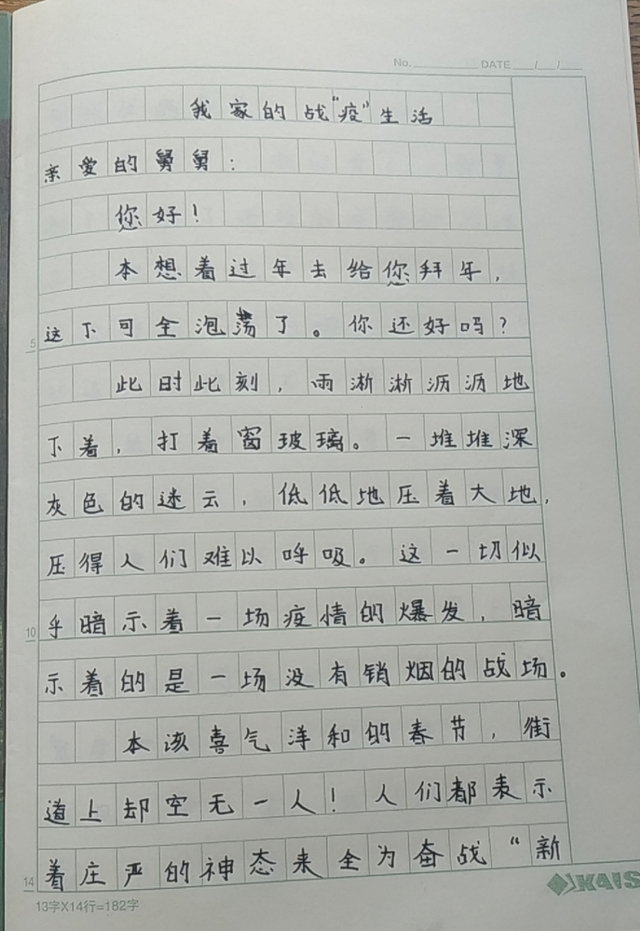 No.________ DATE ___/___/___
我家的战“疫”生活
亲爱的舅舅：
您好！
本想着过年去给您拜年，
5 这下可全泡荡了。你还好吗？
此时此刻，雨淅淅沥沥地
下着，打着窗玻璃。一堆堆深
灰色的迷云，低低地压着大地，
压得人们难以呼吸。这一切似
10 乎暗示着一场疫情的爆发，暗
示着的是一场没有销烟的战场。
本该喜气洋和的春节，街
道上却空无一人！人们都表示
14 着庄严的神态来全为奋战“新
KAIS
13字X14行=182字